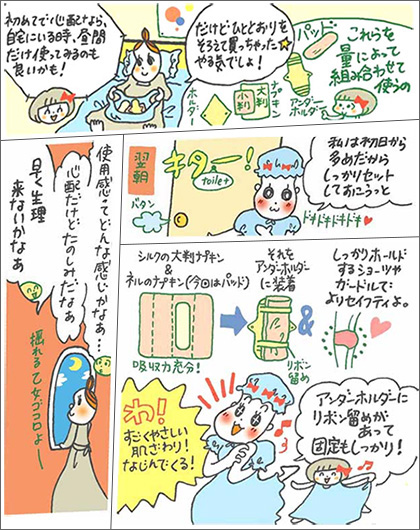 初めてで心配なら、
自宅にいる時、昼間
だけ使ってみるのも
良いかも!
だけどひととおりを
そろえて買っちゃった★
やる気でしょ!
パッド
これらを
量によって
組み合わせて
使うの
ホルダー
小判
大判
ナプキン
アンダー
ホルダー
使用感ってどんな感じかなぁ…
心配だけどたのしみだなぁ
早く生理
来ないかなぁ
揺れる乙女ゴコロよー
翌朝
キター!
toilet
バタン
私は初日から
多めだから
しっかりセット
しておこうっと
ドキドキドキドキ♥
シルクの大判ナプキン
&
ネルのナプキン(今回はパッド)
吸収力充分!
それを
アンダーホルダー
に装着
リボン
留め
&
しっかりホールド
するショーツや
ガードルで、
よりセイフティ。
わ!
すごくやさしい
肌ざわり!
なじんでくる!
アンダーホルダーに
リボン留めが
あって
固定もしっかり!